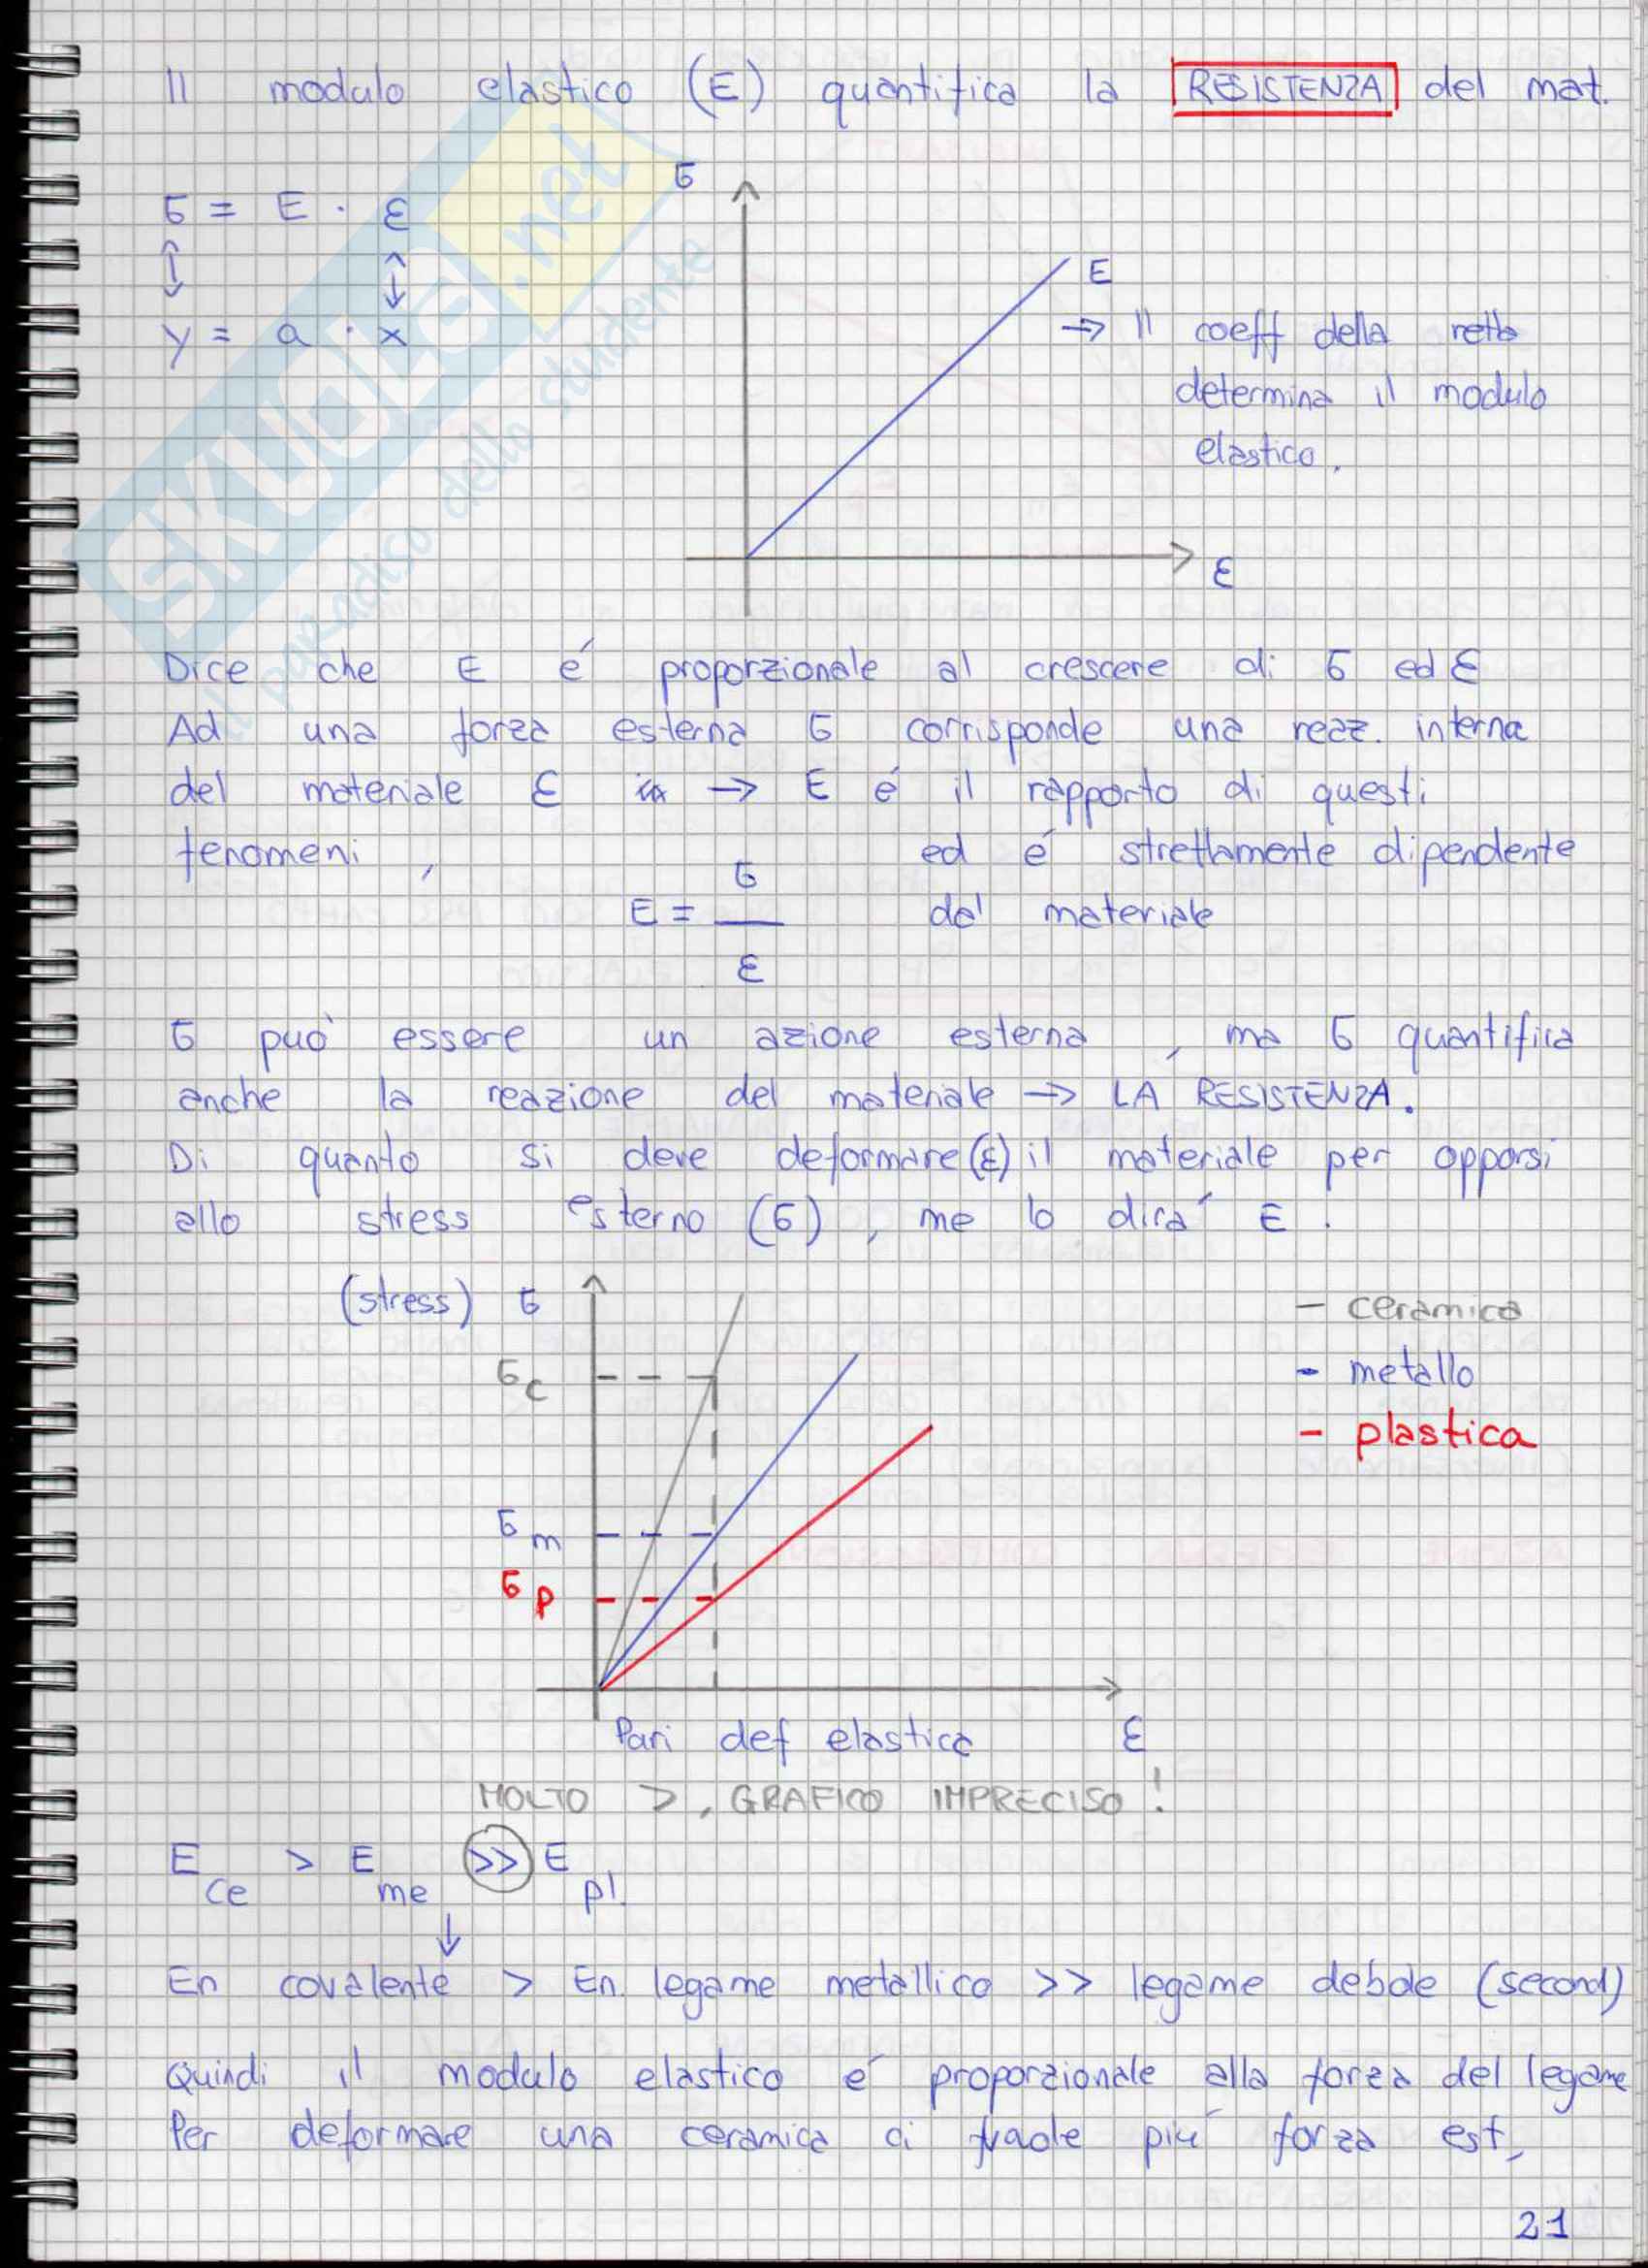 Il modulo elastico (E) quantifica la RESISTENZA del mat.
σ = E · ε
y = a · x
σ
E
→ Il coeff della retta
determina il modulo
elastico.
ε
Dice che E é proporzionale al crescere di σ ed ε
Ad una forza esterna σ corrisponde una reaz. interna
del materiale ε → E é il rapporto di questi
fenomeni, ed é strettamente dipendente
E = σ / ε dal materiale
σ può essere un azione esterna, ma σ quantifica
anche la reazione del materiale → LA RESISTENZA.
Di quanto si deve deformare (ε) il materiale per opporsi
allo stress esterno (σ), me lo dirá E.
(stress) σ
- ceramica
- metallo
- plastica
σc
σm
σp
Pari def elastica ε
MOLTO >, GRAFICO IMPRECISO!
E ce > E me >> E pl.
↓
En covalente > En. legame metallico >> legame debole (second)
Quindi il modulo elastico é proporzionale alla forza del legame
Per deformare una ceramica ci vuole piú forza est,
21
SKUOLA.net
il paradiso dello studente